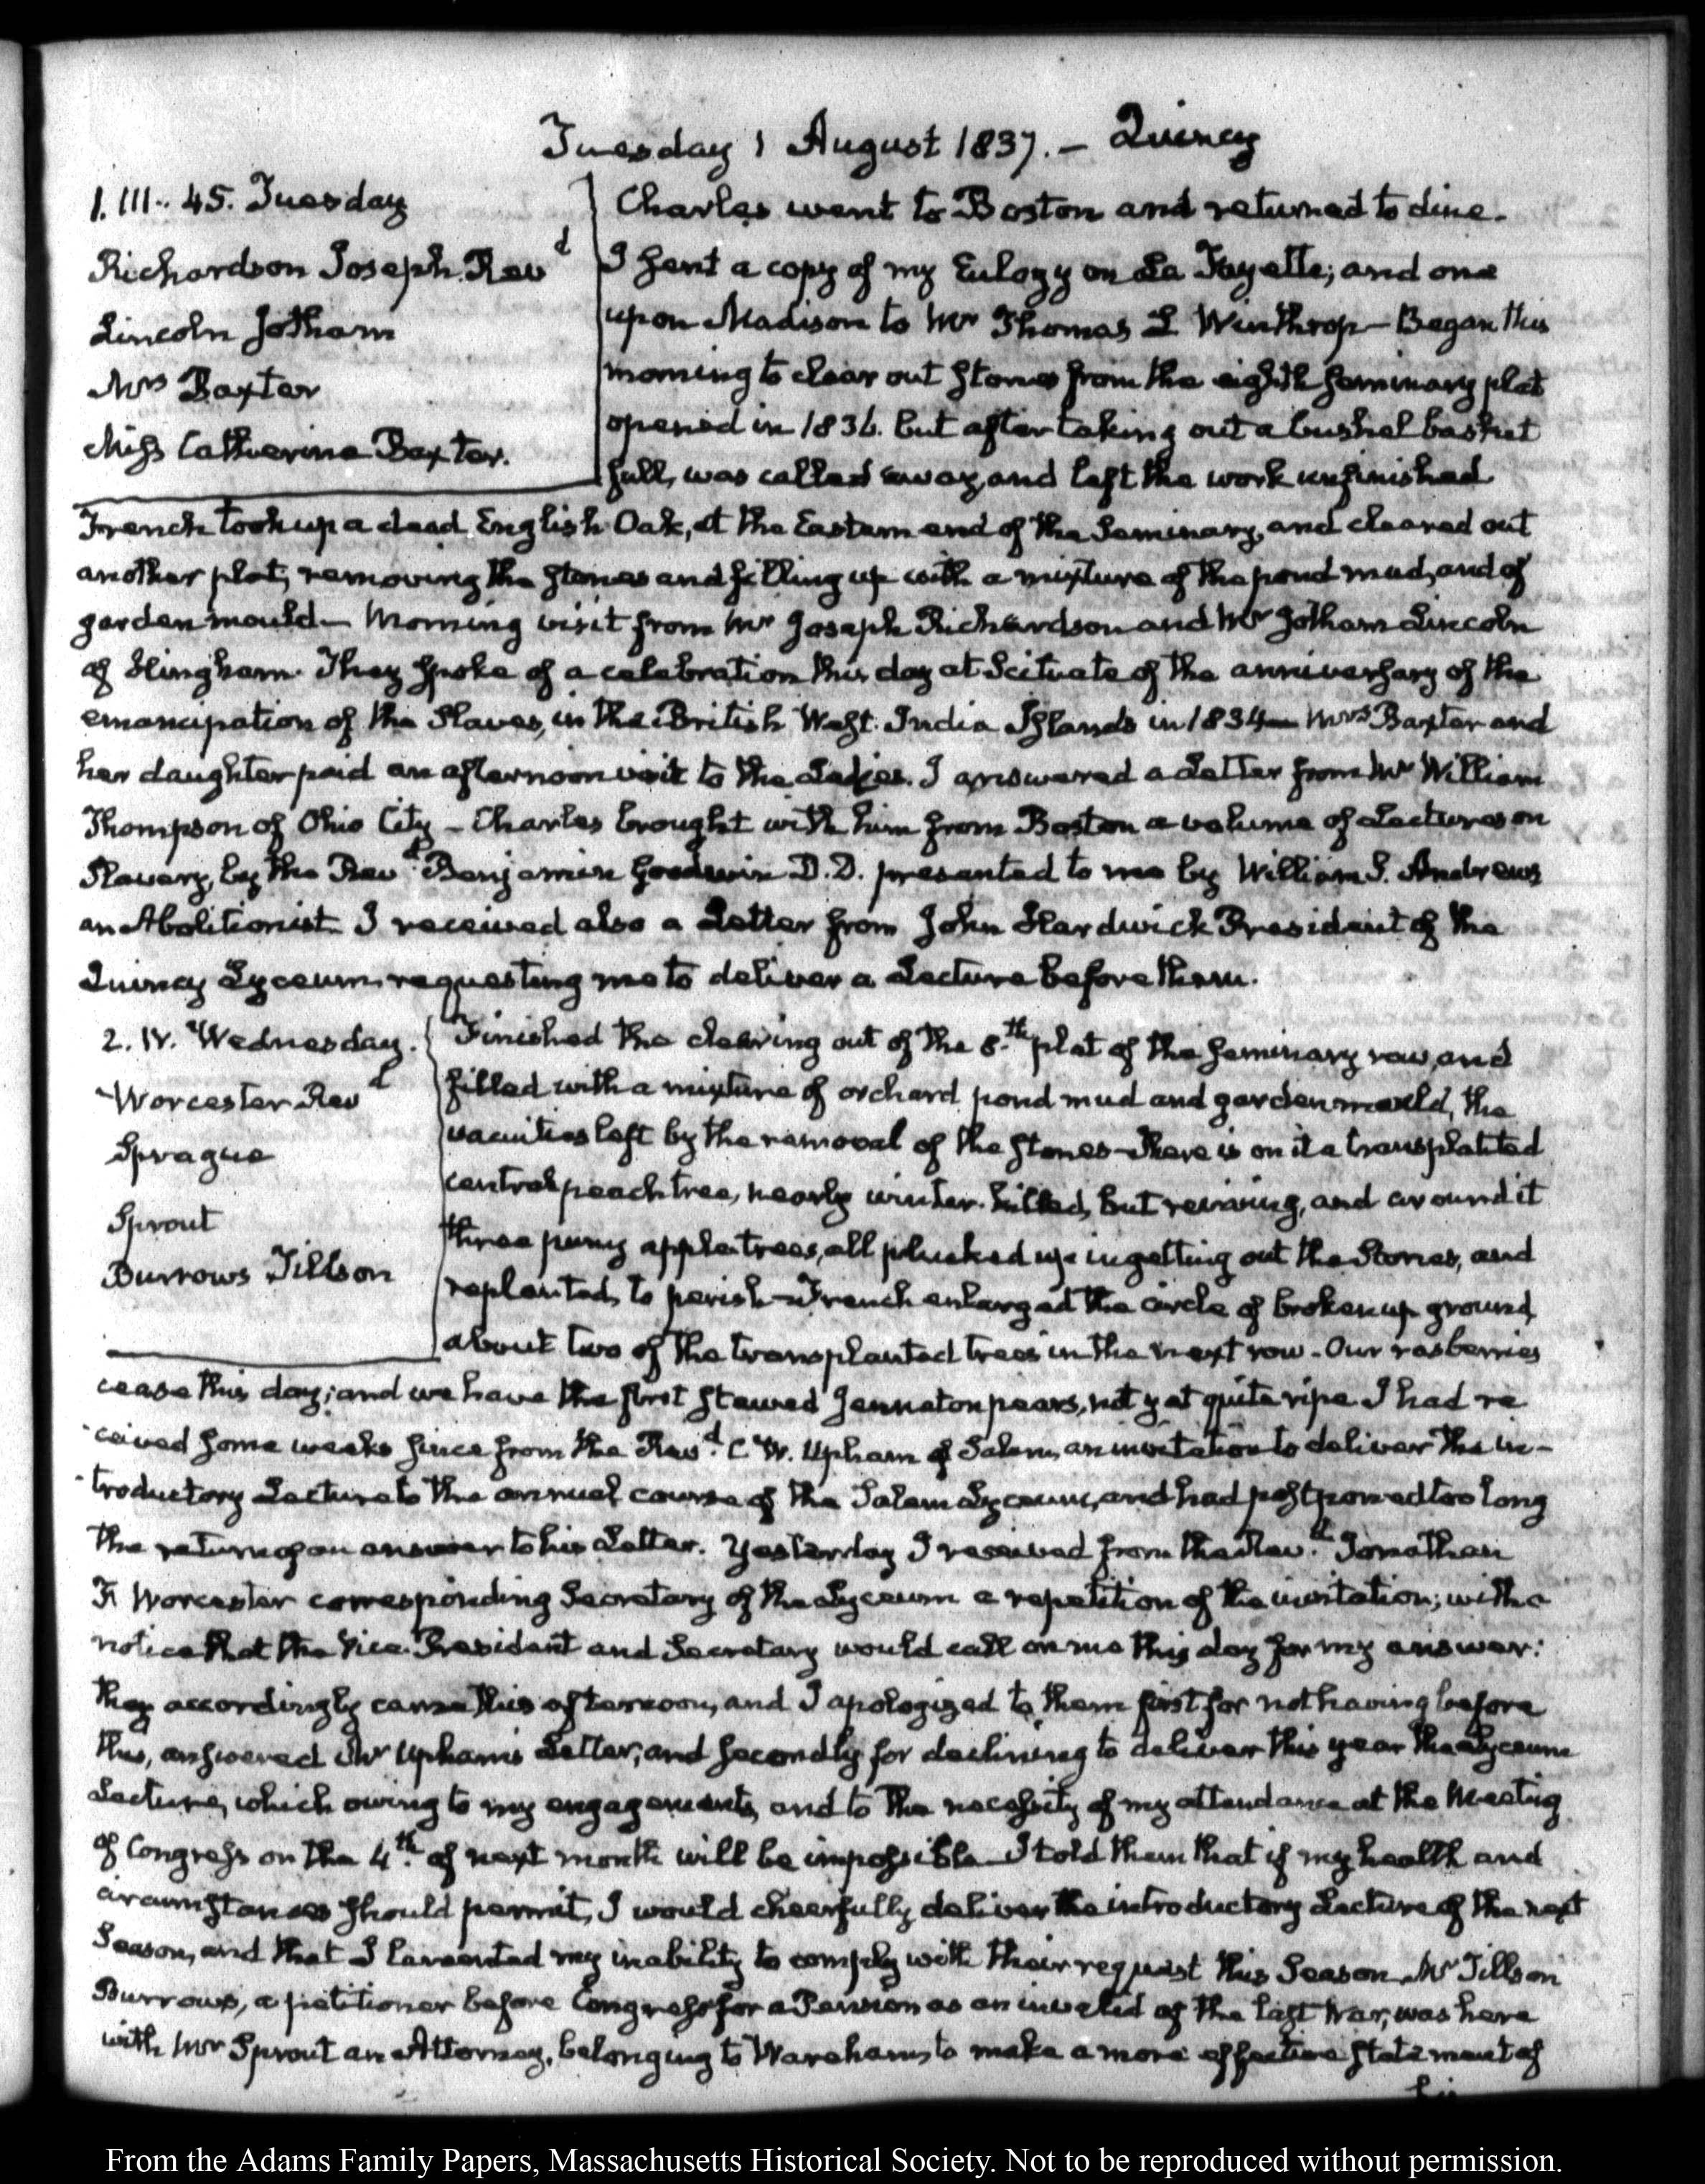 Tuesday 1 August 1837. — Quincy
1. III.. 45. Tuesday
Richardson Joseph. Revd
Lincoln Jotham
Mrs Baxter
Miss Catherine Baxter.
Charles went to Boston and returned to dine.
I sent a copy of my Eulogy on La Fayette; and one
upon Madison to Mr Thomas L Winthrop — Began this
morning to clear out stones from the eighth seminary plat
opened in 1836. but after taking out a bushel basket
full, was called away, and left the work unfinished
French took up a dead English Oak, at the Eastern end of the Seminary, and cleared out
another plat, removing the stones and filling up with a mixture of the pond mud, and of
garden mould — Morning visit from Mr Joseph Richardson and Mr Jotham Lincoln
of Hingham. They spoke of a celebration this day at Scituate of the anniversary of the
emancipation of the Slaves, in the British West. India Islands in 1834 — Mrs Baxter and
her daughter paid an afternoon visit to the Ladies. I answered a Letter from Mr William
Thompson of Ohio City — Charles brought with him from Boston a volume of Lectures on
Slavery, by the Revd Benjamin Goodwin D.D. presented to me by William S. Andrews
an Abolitionist. I received also a Letter from John Hardwick President of the
Quincy Lyceum, requesting me to deliver a Lecture before them.
2. IV. Wednesday.
Worcester Revd
Sprague
Sprout
Burrows Tillson
Finished the clearing out of the 8.th plat of the seminary row, and
filled with a mixture of orchard pond mud and garden mould, the
vacuities left by the removal of the stones — There is on it a transplanted
central peach tree, nearly winter. killed, but reviving, and around it
three puny apple trees, all plucked up in getting out the Stones, and
replanted, to perish — French enlarged the circle of broken up ground
about two of the transplanted trees in the next row — Our rasberries
cease this day; and we have the first stewed Jennaton pears, not yet quite ripe. I had re
ceived some weeks since from the Revd. C. W. Upham of Salem, an invitation to deliver the in-
troductory Lecture to the annual course of the Salem Lyceum, and had postponed too long
the return of an answer to his Letter. Yesterday I received from the Revd. Jonathan
F. Worcester corresponding Secretary of the Lyceum a repetition of the invitation; with a
notice that the Vice. President and Secretary would call on me this day for my answer:
they accordingly came this afternoon, and I apologized to them first for not having before
this, answered Mr Upham's Letter; and secondly for declining to deliver this year the Lyceum
Lecture, which owing to my engagements, and to the necessity of my attendance at the Meeting
of Congress on the 4th. of next month will be impossible. I told them that if my health and
circumstances should permit, I would cheerfully deliver the introductory Lecture of the next
Season, and that I lamented my inability to comply with their request this Season. Mr Tillson
Burrows, a petitioner before Congress for a Pension as an invalid of the last War, was here
with Mr Sprout an Attorney, belonging to Wareham, to make a more effective statement of
From the Adams Family Papers, Massachusetts Historical Society. Not to be reproduced without permission.